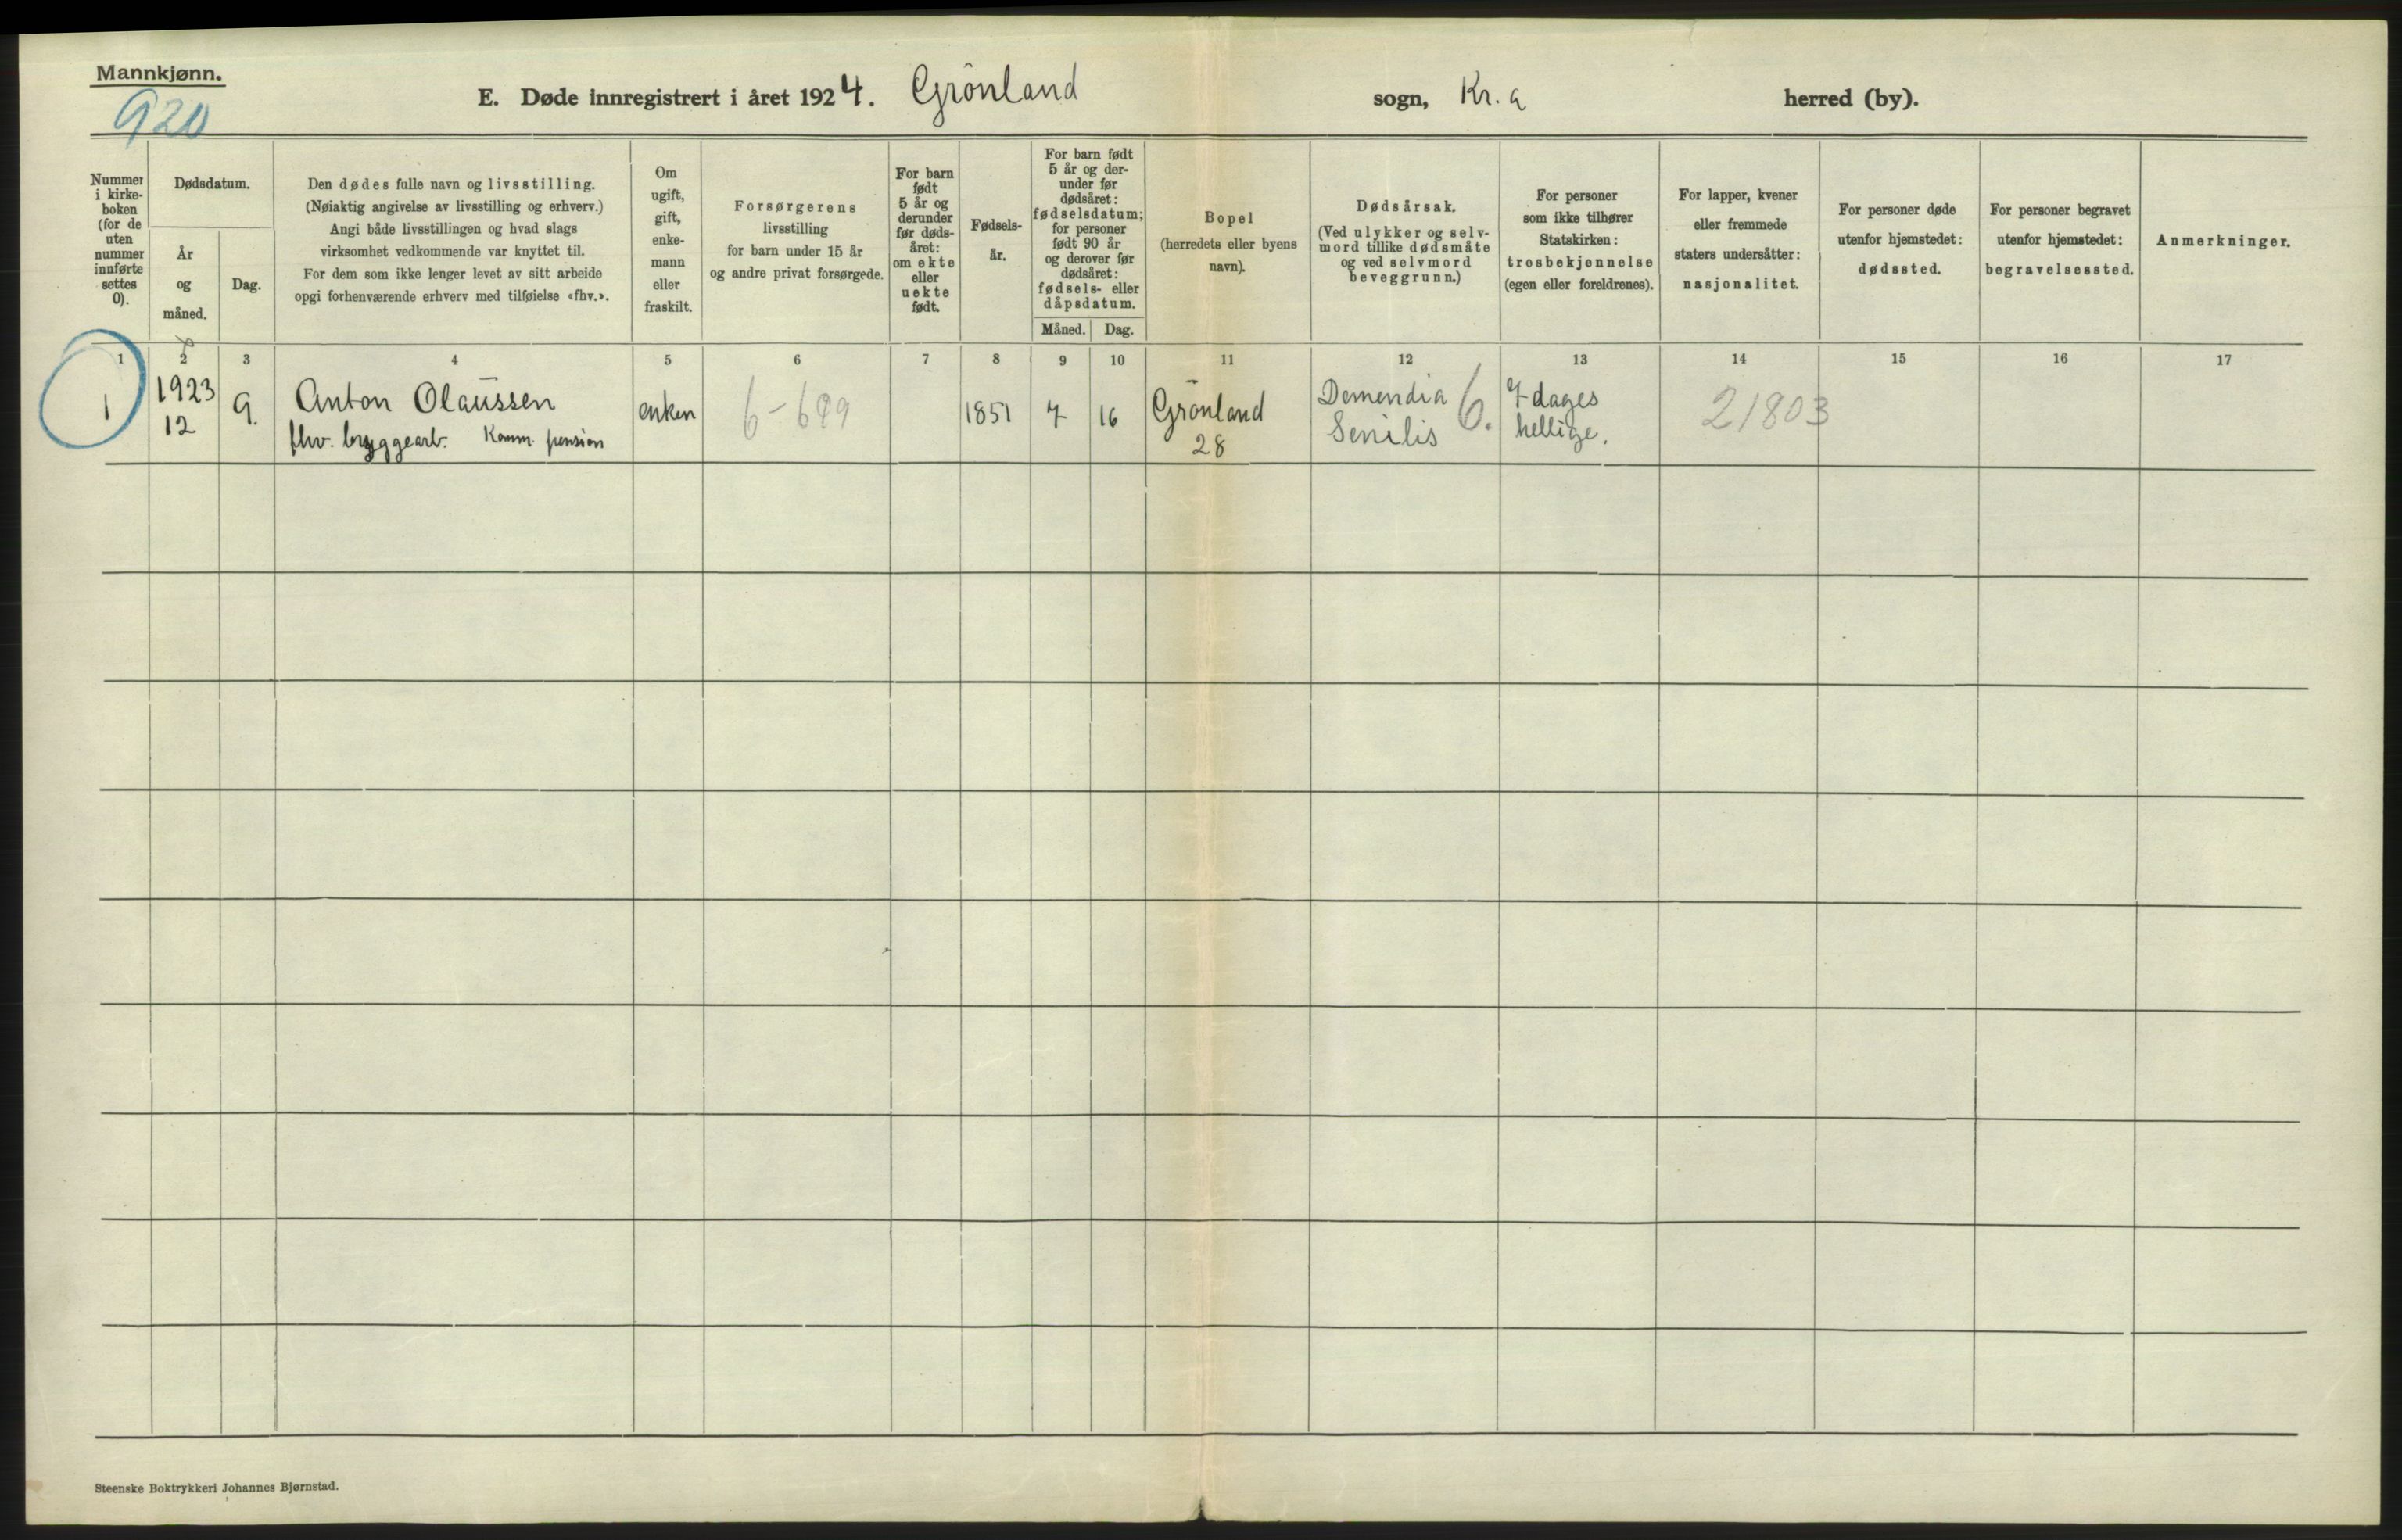 Mannkjønn.
920
E. Døde innregistrert i året 1924. Grönland sogn, Kr.a herred (by).
Nummer
i kirke-
boken
(for de
uten
nummer
innførte
settes
0).
Dødsdatum.
År
og
måned.
Dag.
Den dødes fulle navn og livsstilling.
(Nøiaktig angivelse av livsstilling og erhverv.)
Angi både livsstillingen og hvad slags
virksomhet vedkommende var knyttet til.
For dem som ikke lenger levet av sitt arbeide
opgi forhenværende erhverv med tilføielse «fhv.».
Om
ugift,
gift,
enke-
mann
eller
fraskilt.
Forsørgerens
livsstilling
for barn under 15 år
og andre privat forsørgede.
For barn
født
5 år og
derunder
før døds-
året:
om ekte
eller
uekte
født.
Fødsels-
år.
For barn født
5 år og der-
under før
dødsåret:
fødselsdatum;
for personer
født 90 år
og derover før
dødsåret:
fødsels- eller
dåpsdatum.
Måned. Dag.
Bopel
(herredets eller byens
navn).
Dødsårsak.
(Ved ulykker og selv-
mord tillike dødsmåte
og ved selvmord
beveggrunn.)
For personer
som ikke tilhører
Statskirken:
trosbekjennelse
(egen eller foreldrenes).
For lapper, kvener
eller fremmede
staters undersåtter:
nasjonalitet.
For personer døde
utenfor hjemstedet:
dødssted.
For personer begravet
utenfor hjemstedet:
begravelsessted.
Anmerkninger.
1 2 3 4 5 6 7 8 9 10 11 12 13 14 15 16 17
1
1923
12
9.
Anton Olaussen
fhv. bryggearb. Komm. pension
enkem
6-699
1851
7
16
Grönland
28
Demendia
Senilis
6.
7 dages
hellige.
21803
Steenske Boktrykkeri Johannes Bjørnstad.